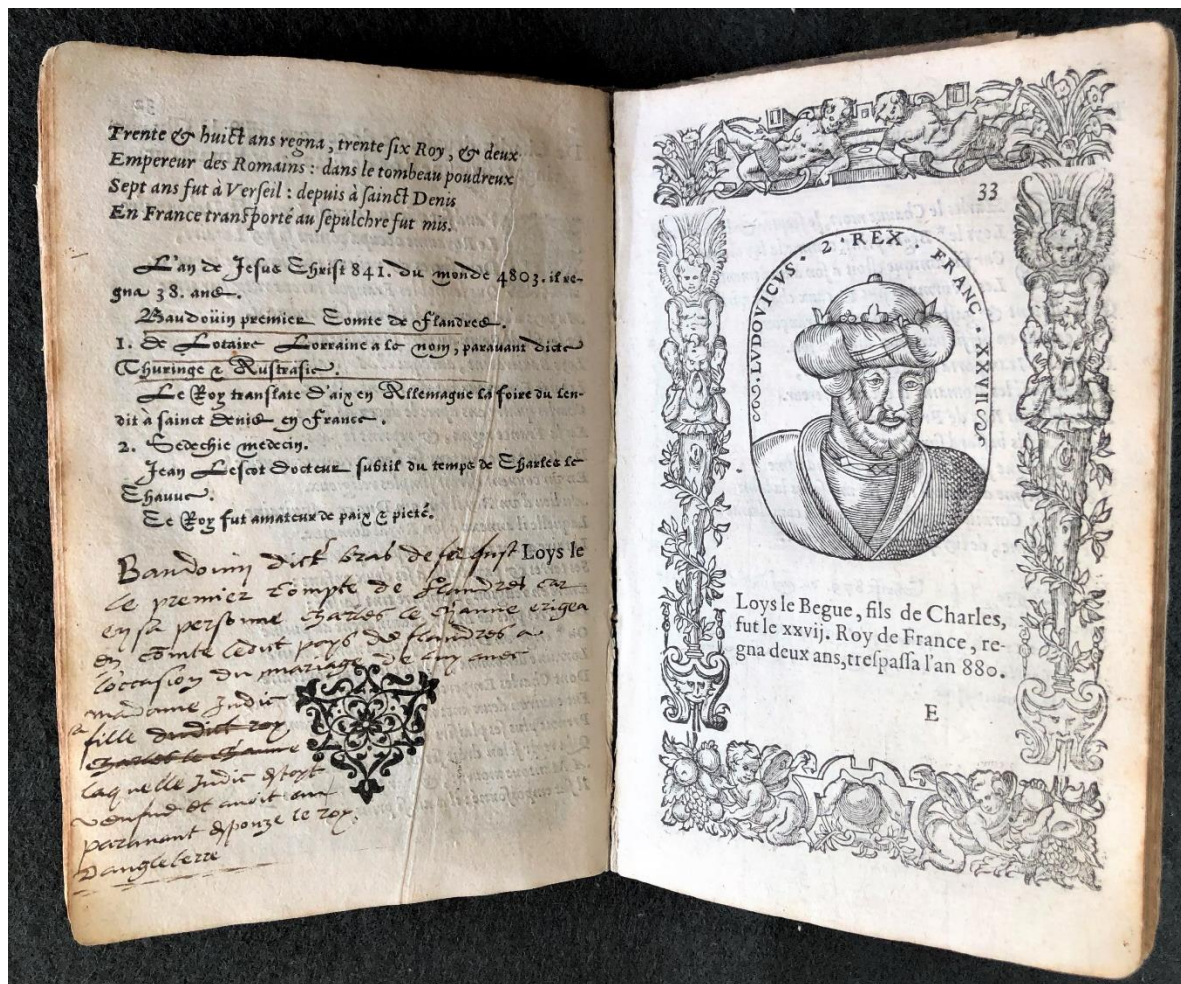 Trente & huict ans regna, trente six Roy, & deux
Empereur des Romains : dans le tombeau poudreux
Sept ans fut à Verseil : depuis à sainct Denis
En France transporté au sepulchre fut mis.
L'an de Jesus Christ 841. du monde 4803. il re-
gna 38. ans.
Baudoüin premier Comte de Flandres.
1. de Lotaire Lorraine a le nom, paravant dicte
Thuringe & Austrasie.
Le Roy translate d'aix en Allemagne la foire du len-
dit à sainct Denis en France.
2. Sedechie medecin.
Jean Lescot Docteur subtil du temps de Charles le
Chauve.
Ce Roy fut amateur de paix & pieté.
Loys le
Baudouin dict bras de fer fust
le premier Compte de Flandres car
en sa personne Charles le Chauve erigea
en Comté ledit pays de flandres a
l'occasion du mariage de luy avec
madame Judic
fille dudict roy
Charles le Chauve
laquelle Judic estoyt
et avoit
paravant espouze le roy
Dangleterre
33
LVDOVICVS · 2 · REX FRANC · XXVII
Loys le Begue, fils de Charles,
fut le xxvij. Roy de France, re-
gna deux ans, trespassa l'an 880.
E